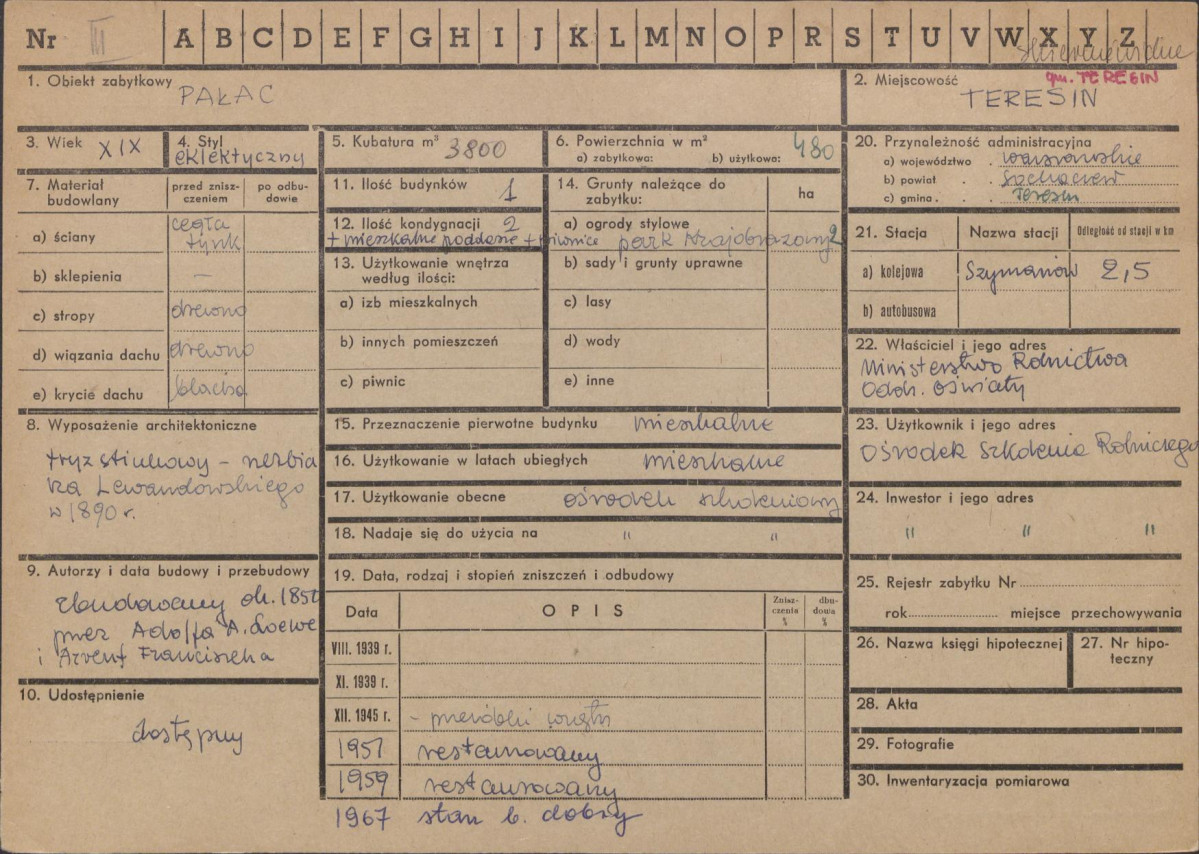 Nr III A B C D E F G H I J K L M N O P R S T U V W X Y Z
skierniewickie
1. Obiekt zabytkowy
PAŁAC
2. Miejscowość
gm. TERESIN
TERESIN
3. Wiek XIX
4. Styl
eklektyczny
5. Kubatura m³ 3800
6. Powierzchnia w m²
a) zabytkowa: b) użytkowa: 480
20. Przynależność administracyjna
a) województwo warszawskie
b) powiat Sochaczew
c) gmina Teresin
7. Materiał budowlany
przed zniszczeniem
po odbudowie
a) ściany
cegła
tynk
b) sklepienia –
c) stropy drewno
d) wiązania dachu drewno
e) krycie dachu blacha
11. Ilość budynków 1
12. Ilość kondygnacji 2
+ mieszkalne poddasze + piwnice
13. Użytkowanie wnętrza
według ilości:
a) izb mieszkalnych
b) innych pomieszczeń
c) piwnic
14. Grunty należące do
zabytku:
ha
a) ogrody stylowe
park krajobrazowy 2
b) sady i grunty uprawne
c) lasy
d) wody
e) inne
21. Stacja Nazwa stacji Odległość od stacji w km
a) kolejowa Szymanów 2,5
b) autobusowa
22. Właściciel i jego adres
Ministerstwo Rolnictwa
Oddz. Oświaty
8. Wyposażenie architektoniczne
fryz stiukowy – rzeźbia
rza Lewandowskiego
w 1890 r.
15. Przeznaczenie pierwotne budynku mieszkalne
16. Użytkowanie w latach ubiegłych mieszkalne
17. Użytkowanie obecne ośrodek szkoleniowy
18. Nadaje się do użycia na " "
23. Użytkownik i jego adres
Ośrodek Szkolenia Rolniczego
24. Inwestor i jego adres
" " "
9. Autorzy i data budowy i przebudowy
Zbudowany ok.
przez Adolfa A. Loewe
i Franciszka
10. Udostępnienie
dostępny
19. Data, rodzaj i stopień zniszczeń i odbudowy
Data OPIS Zniszczenia % dbudowa %
VIII. 1939 r.
XI. 1939 r.
XII. 1945 r. – przeróbki wnętrz
1957 restaurowany
1959 restaurowany
1967 stan b. dobry
25. Rejestr zabytku Nr
rok miejsce przechowywania
26. Nazwa księgi hipotecznej
27. Nr hipoteczny
28. Akta
29. Fotografie
30. Inwentaryzacja pomiarowa